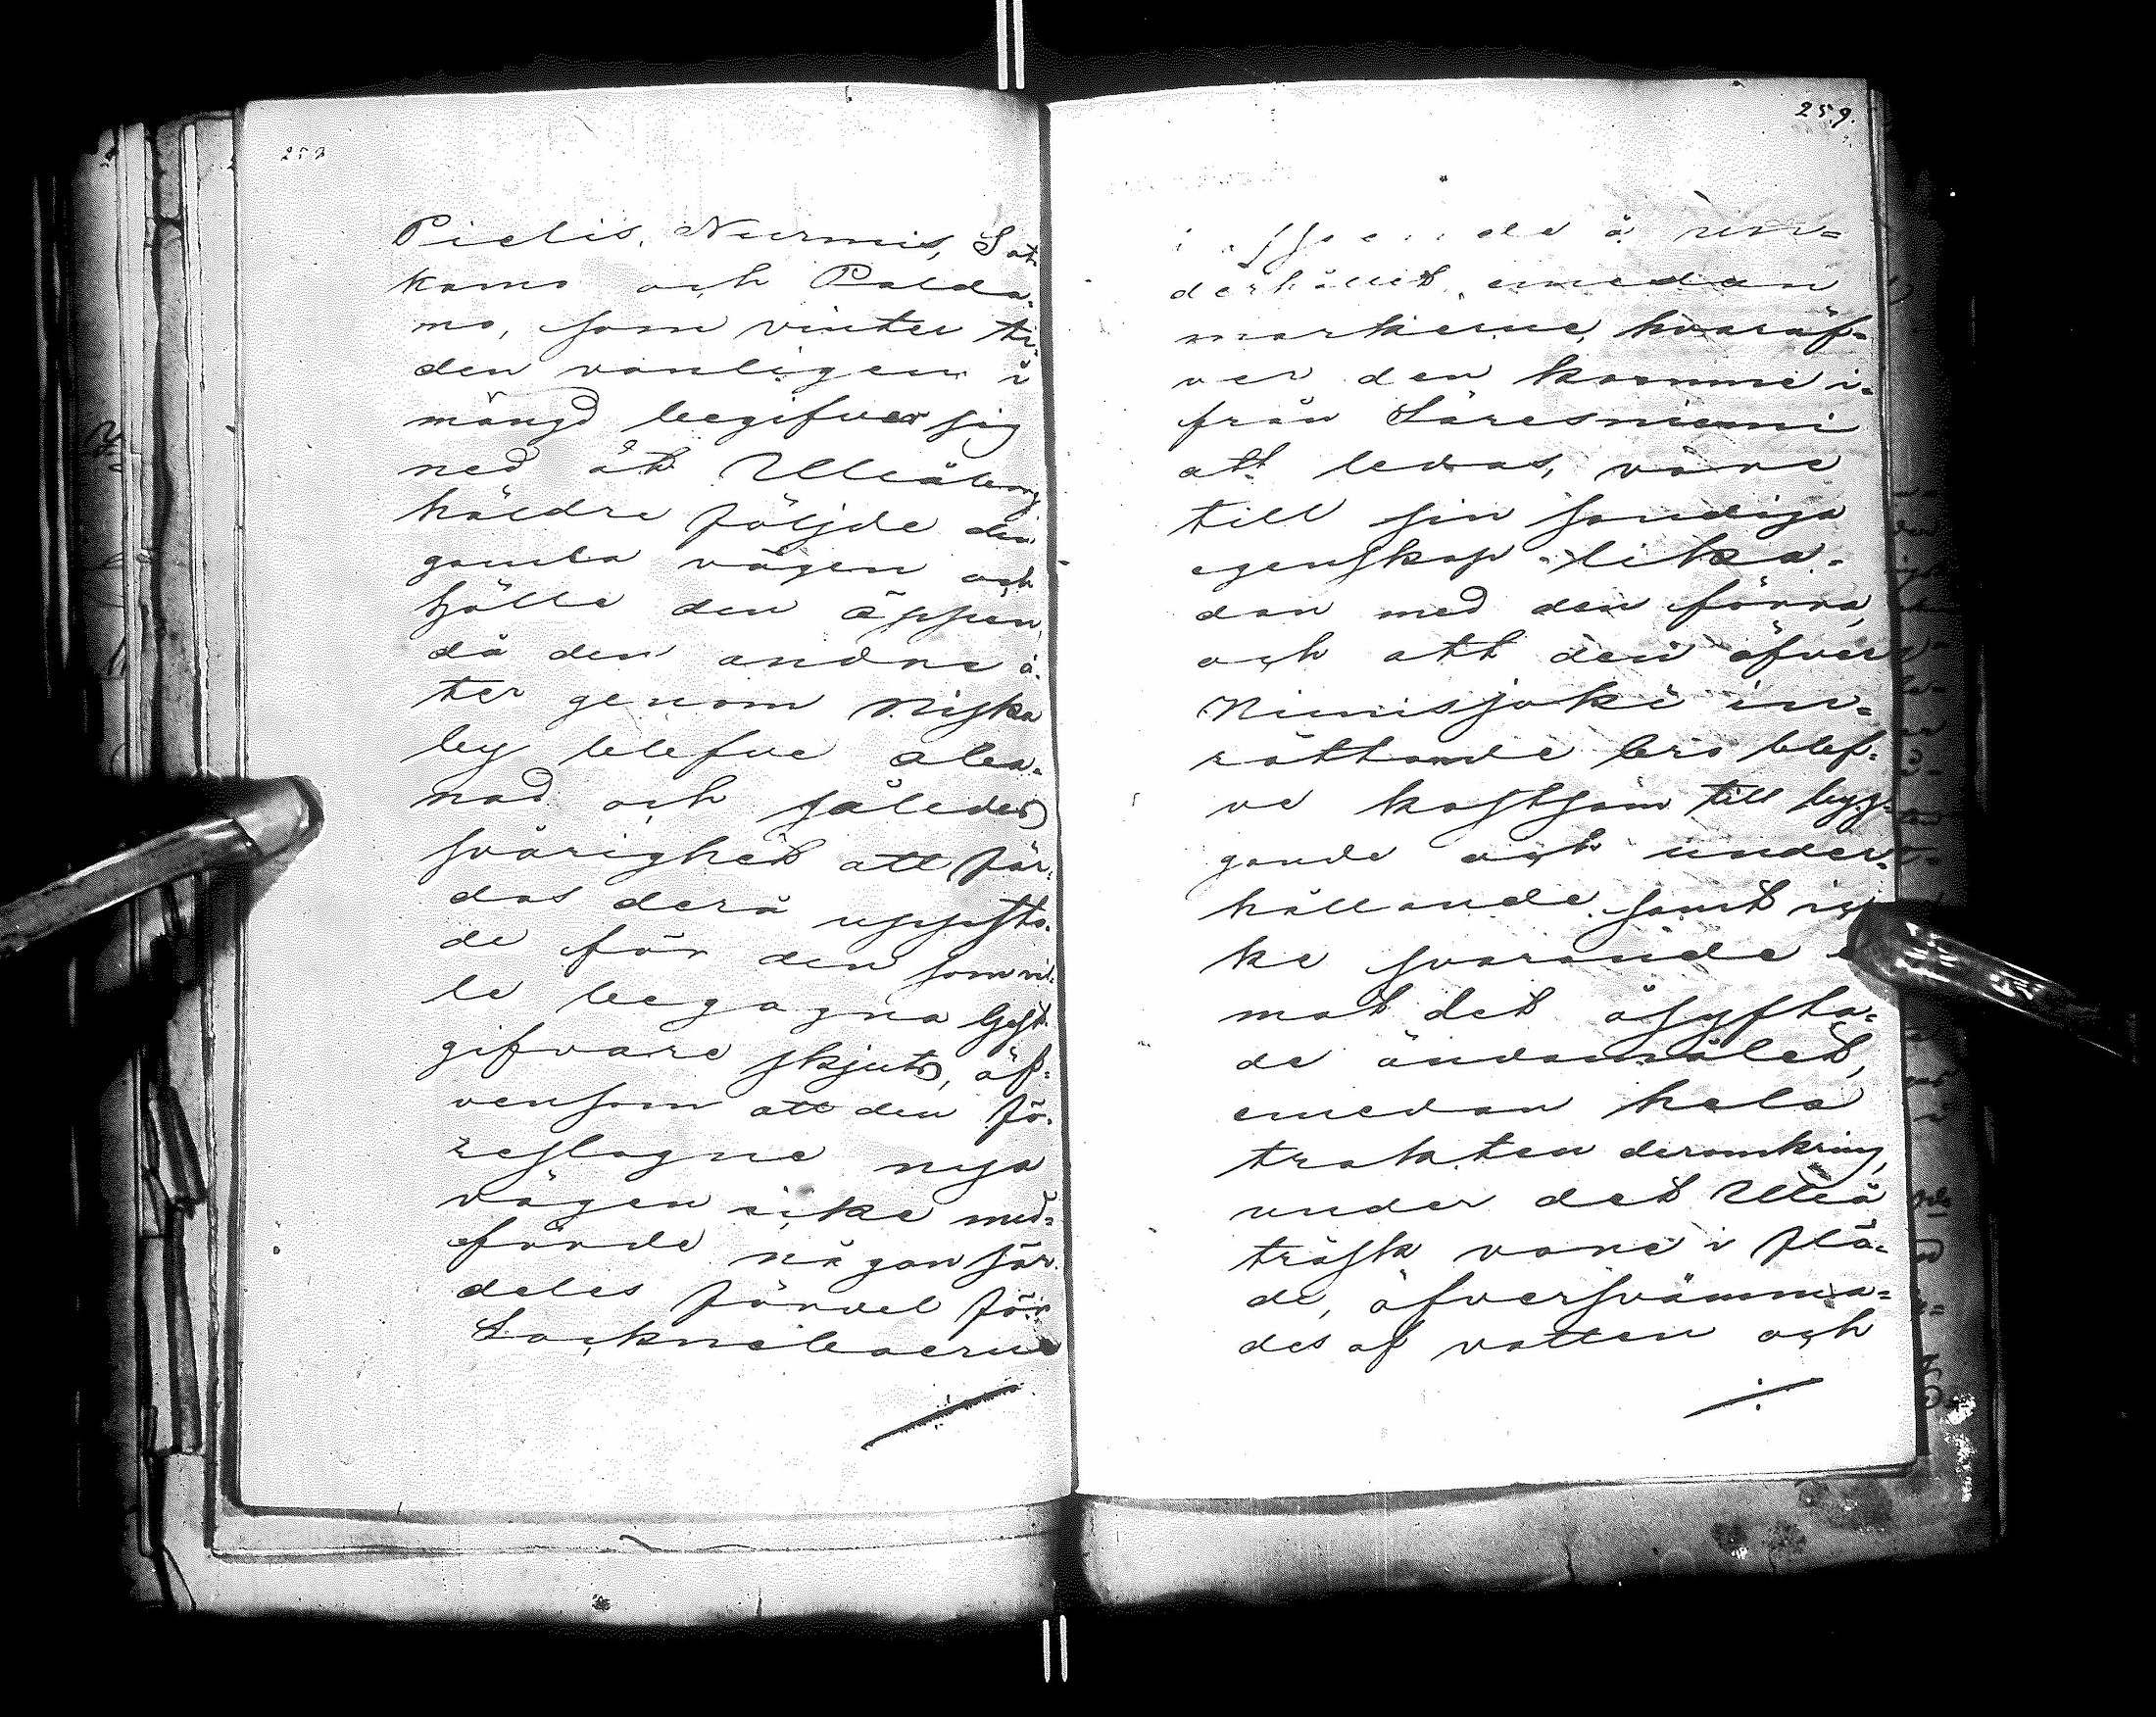 Pielis, Nurmis, Sot¬
kamo och Palda¬
mo, som vinter ti¬
den vanligen i
mängd begifver sig
ned åt Uleåborg
häldre följde den
gamla vägen och
hölle den öppen,
då den andre å¬
ter genom Niska
by blefve olba¬
nad och således
svårighet att fär¬
das derå uppsto¬
de för den som vil¬
le begagna Gäst¬
gifvare skjuts, äf¬
vensom att den fö¬
reslagne nya
vägen icke med¬
förde någon sär¬
deles fördel för
Sockneboerne
259.
de å un¬
derhållet, emedan
markerne, hvaröf¬
ver den komme i¬
från Säresniemi
att ledas, vore
till sin sandiga
egenskap lika¬
dan med den förra,
och att den öfver
Nimisjoki in¬
rättande bro blef¬
ve kostsam till byg¬
gande och under¬
hållande samt ic¬
ke svarande e
mot det åsyfta¬
de ändamålet,
emedan hela
trakten deromkring,
under det Uleå
träsk vore i flö¬
de, öfversvämma¬
des af vatten och